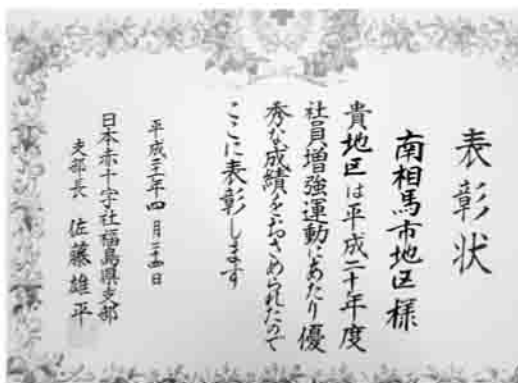 表彰状
南相馬市地区様
貴地区は平成二十年度
社員増強運動にあたり優
秀な成績をおさめられたので
ここに表彰します
平成二十一年四月二十四日
日本赤十字社福島県支部
支部長 佐藤雄平